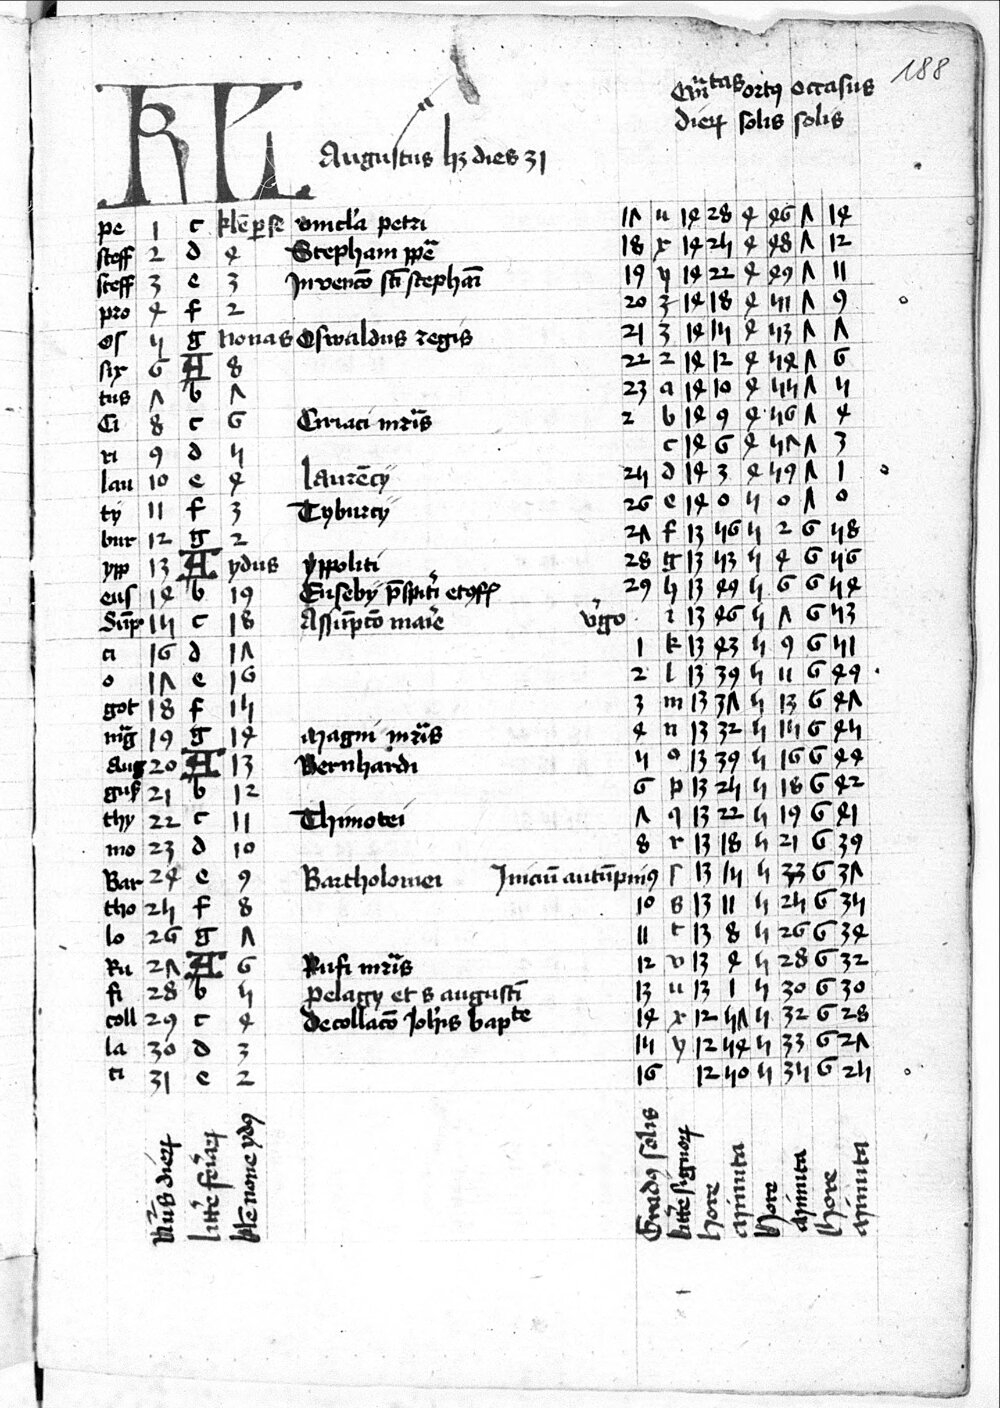 188
Qūtas ortꝰ occasus
dieꝝ solis solis
KL Augustus hꝫ dies 31
pe 1 c klē vincl'a petri 17 u 14 28 4 46 7 14
steff 2 d 4 Stephani ppē 18 x 14 25 4 48 7 12
steff 3 e 3 Invencō sti stephāi 19 y 14 22 4 49 7 11
pro 4 f 2 20 z 14 18 4 51 7 9
os 5 g nonas Oswaldus regis 21 3 14 15 4 53 7 7
six 6 A 8 22 2 14 12 4 54 7 6
tus 7 b 7 23 a 14 10 4 55 7 5
Ci 8 c 6 Ciriaci mr̄is 2 b 14 9 4 56 7 4
ri 9 d 5 c 14 6 4 57 7 3
lau 10 e 4 laurēcy 25 d 14 3 4 59 7 1
ty 11 f 3 Tyburcy 26 e 14 0 5 0 7 0
bur 12 g 2 27 f 13 56 5 2 6 58
ypp 13 A ydus yppoliti 28 g 13 53 5 4 6 56
eus 14 b 19 Euseby p̄spiti 29 h 13 49 5 6 6 54
Sūp 15 c 18 Assūptō marie v'go i 13 46 5 7 6 53
ci 16 d 17 1 k 13 43 5 9 6 51
o 17 e 16 2 l 13 39 5 11 6 49
got 18 f 15 3 m 13 37 5 13 6 47
mag 19 g 14 Magni mr̄is 4 n 13 32 5 15 6 45
aug 20 A 13 Bernhardi 5 o 13 39 5 16 6 44
gus 21 b 12 6 p 13 25 5 18 6 42
thy 22 c 11 Thimotei 7 q 13 22 5 19 6 41
mo 23 d 10 8 r 13 18 5 21 6 39
Bar 24 e 9 Bartholomei Iniciū autūpniꝰ ſ 13 15 5 6 37
tho 25 f 8 10 s 13 11 5 25 6 35
lo 26 g 7 11 t 13 8 5 26 6 34
Ru 27 A 6 Rufi mr̄is 12 v 13 4 5 28 6 32
fi 28 b 5 Pelagy et s augusti 13 u 13 1 5 30 6 30
coll 29 c 4 decollacō Joh'is bapte 14 x 12 57 5 32 6 28
la 30 d 3 15 y 12 54 5 33 6 27
ti 31 e 2 16 12 50 5 35 6 25
Nūs dieꝝ
litt'e feriaꝝ
kle none ydꝰ
Gradꝰ solis
litt'e signoꝝ
hore
minuta
hore
minuta
hore
minuta